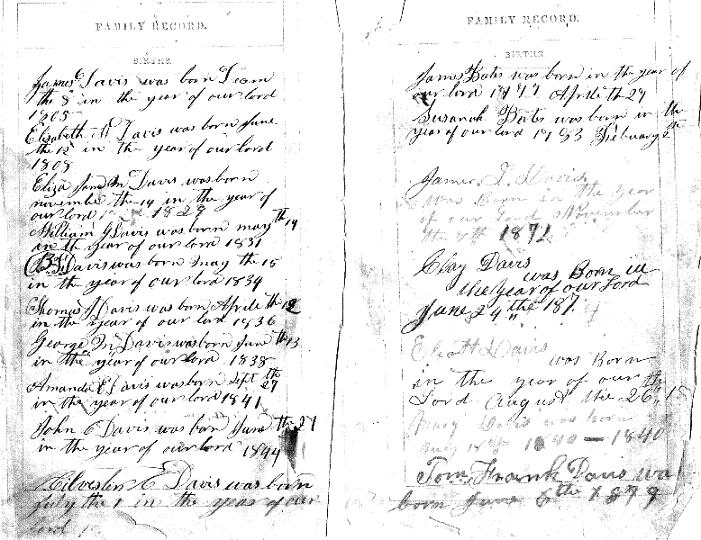 FAMILY RECORD.
BIRTHS
James Davis was born
the 8 in the year of our lord
1805
Elisabeth M Davis was born June
the 12 in the year of our lord
1808
Eliza Jane M Davis was born
november the 14 in the year of
our lord 1829
William G Davis was born may the 19
in the year of our lord 1831
Davis was born may the 15
in the year of our lord 1834
Thomas J Davis was born Aprile th 12
in the year of our lord 1836
George M Davis was born June th 13
in the year of our lord 1838
Amanda E Davis was born Sept th 27
in the year of our lord 1841
John Davis was born June the 27
in the year of our lord 1844
E Davis was born
July the 1 in the year of our
lord
FAMILY RECORD.
BIRTHS
James Bates was born in the year of
our lord 1777 Aprile th 29
Susanah Bates was born in the
year of our lord 1783 Febuary
James Davis
was Born in the year
of our Lord November
the 8th 1871
Clay Davis
was Born in
the year of our Lord
June 24th the 187
Davis
was Born
in the year of our
Lord August the 26th
Davis was Born
1840
Tom Frank Davis was
born June 6th 1879